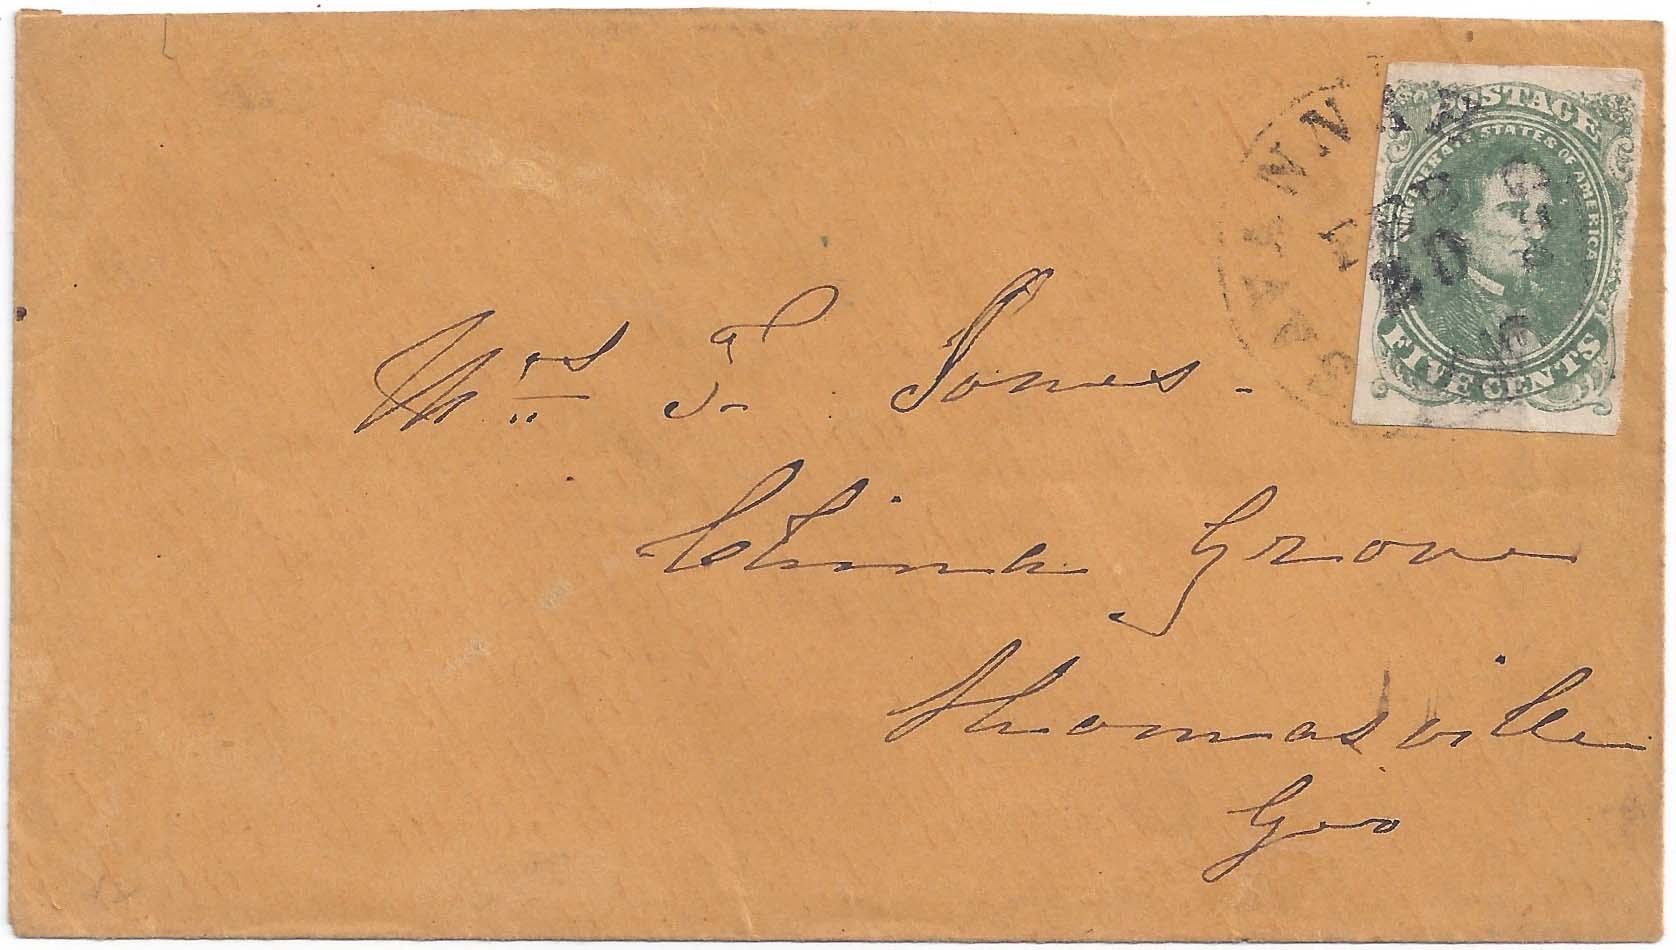 POSTAGE
CONFEDERATE STATES OF AMERICA
FIVE CENTS
SAVANNAH
20
Mrs F. Jones.
China Grove
Thomasville
Geo